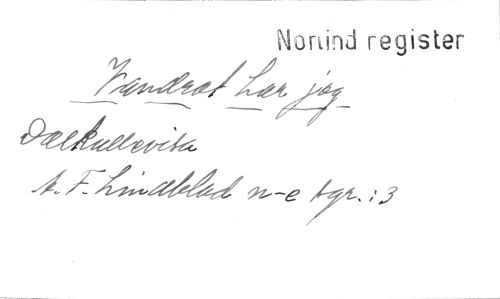 Norlind register
Vandrat har jag
Dalkullevisa
A. F. Lindblad n-e tgr.: 3